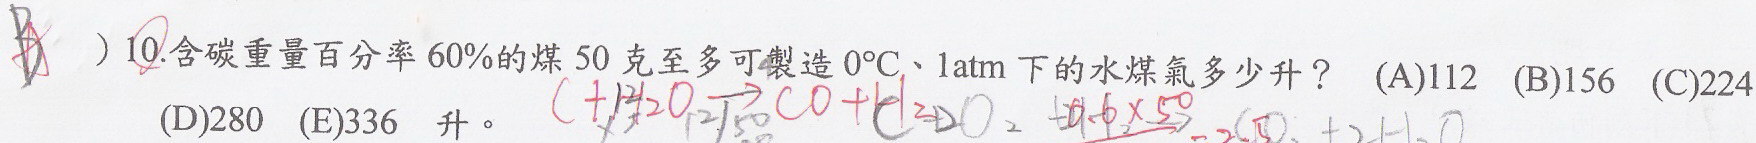 B ) 10.含碳重量百分率 60%的煤 50 克至多可製造 0°C、1atm 下的水煤氣多少升? (A)112 (B)156 (C)224
(D)280 (E)336 升。 C+H2O → CO+H2 0.6×50